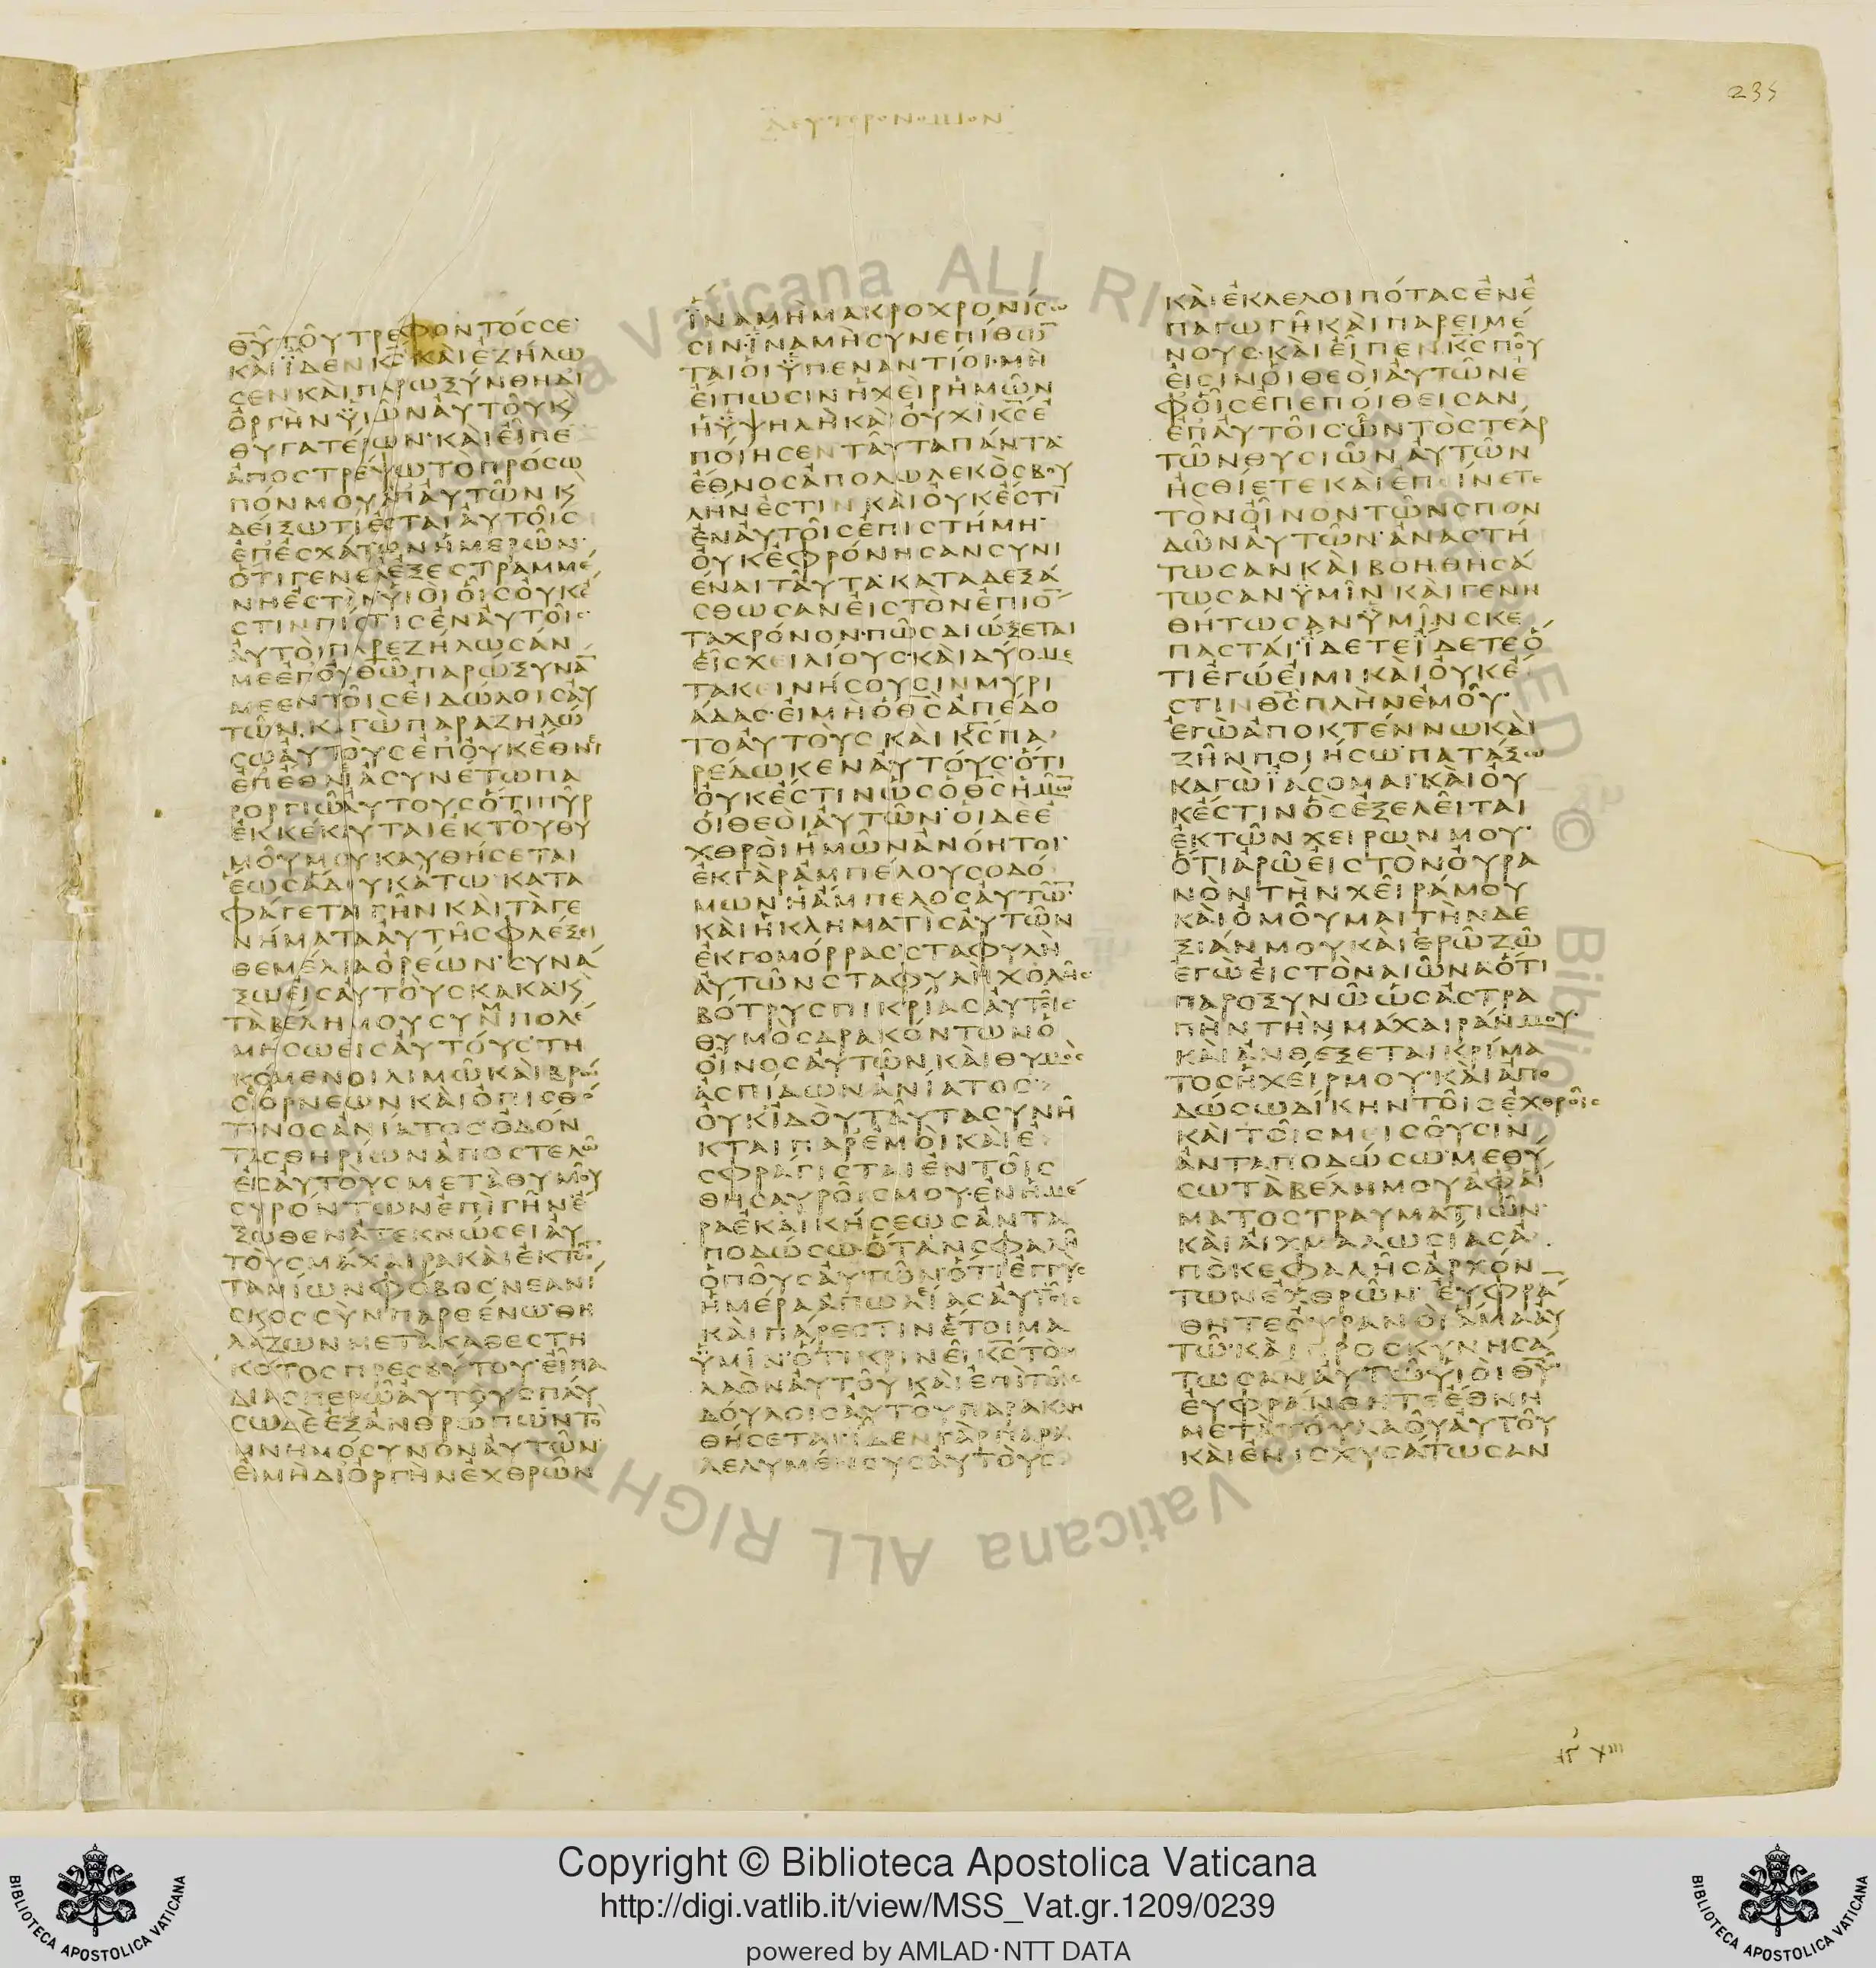 235
ΔΕΥΤΕΡΟΝΟΜΙΟΝ
ΘΥ ΤΟΥ ΤΡΕΦΟΝΤΟΣ ΣΕ
ΚΑΙ ΪΔΕΝ ΚΣ ΚΑΙ ΕΖΗΛΩ
ΣΕΝ ΚΑΙ ΠΑΡΩΞΥΝΘΗ ΔΙ
ΟΡΓΗΝ ΫΙΩΝ ΑΥΤΟΥ Κ
ΘΥΓΑΤΕΡΩΝ ΚΑΙ ΕΙΠΕ
ΑΠΟΣΤΡΕΨΩ ΤΟ ΠΡΟΣΩ
ΠΟΝ ΜΟΥ ΑΠ ΑΥΤΩΝ Κ
ΔΕΙΞΩ ΤΙ ΕΣΤΑΙ ΑΥΤΟΙΣ
ΕΠ ΕΣΧΑΤΩΝ ΗΜΕΡΩΝ
ΟΤΙ ΓΕΝΕΑ ΕΞΕΣΤΡΑΜΜΕ
ΝΗ ΕΣΤΙΝ ΫΙΟΙ ΟΙΣ ΟΥΚ Ε
ΣΤΙΝ ΠΙΣΤΙΣ ΕΝ ΑΥΤΟΙΣ
ΑΥΤΟΙ ΠΑΡΕΖΗΛΩΣΑΝ
ΜΕ ΕΠ ΟΥ ΘΩ ΠΑΡΩΞΥΝΑ
ΜΕ ΕΝ ΤΟΙΣ ΕΙΔΩΛΟΙΣ ΑΥ
ΤΩΝ ΚΑΓΩ ΠΑΡΑΖΗΛΩ
ΣΩ ΑΥΤΟΥΣ ΕΠ ΟΥΚ ΕΘΝΕΙ
ΕΠ ΕΘΝΙ ΑΣΥΝΕΤΩ ΠΑ
ΡΟΡΓΙΩ ΑΥΤΟΥΣ ΟΤΙ ΠΥΡ
ΕΚΚΕΚΑΥΤΑΙ ΕΚ ΤΟΥ ΘΥ
ΜΟΥ ΜΟΥ ΚΑΥΘΗΣΕΤΑΙ
ΕΩΣ ΑΔΟΥ ΚΑΤΩ ΚΑΤΑ
ΦΑΓΕΤΑΙ ΓΗΝ ΚΑΙ ΤΑ ΓΕ
ΝΗΜΑΤΑ ΑΥΤΗΣ ΦΛΕΞΕΙ
ΘΕΜΕΛΙΑ ΟΡΕΩΝ ΣΥΝΑ
ΞΩ ΕΙΣ ΑΥΤΟΥΣ ΚΑΚΑ Κ
ΤΑ ΒΕΛΗ ΜΟΥ ΣΥΜΠΟΛΕ
ΜΗΣΩ ΕΙΣ ΑΥΤΟΥΣ ΤΗ
ΚΟΜΕΝΟΙ ΛΙΜΩ ΚΑΙ ΒΡΩ
ΣΙ ΟΡΝΕΩΝ ΚΑΙ ΟΠΙΣΘΟ
ΤΙΝΟΣ ΑΝΙΑΤΟΣ ΟΔΟΝ
ΤΑΣ ΘΗΡΙΩΝ ΑΠΟΣΤΕΛΩ
ΕΙΣ ΑΥΤΟΥΣ ΜΕΤΑ ΘΥΜΟΥ
ΣΥΡΟΝΤΩΝ ΕΠΙ ΓΗΝ Ε
ΞΩΘΕΝ ΑΤΕΚΝΩΣΕΙ ΑΥ
ΤΟΥΣ ΜΑΧΑΙΡΑ ΚΑΙ ΕΚ ΤΩ
ΤΑΜΙΩΝ ΦΟΒΟΣ ΝΕΑΝΙ
ΣΚΟΣ ΣΥΝ ΠΑΡΘΕΝΩ ΘΗ
ΛΑΖΩΝ ΜΕΤΑ ΚΑΘΕΣΤΗ
ΚΟΤΟΣ ΠΡΕΣΒΥΤΟΥ ΕΙΠΑ
ΔΙΑΣΠΕΡΩ ΑΥΤΟΥΣ ΠΑΥ
ΣΩ ΔΕ ΕΞ ΑΝΘΡΩΠΩΝ ΤΟ
ΜΝΗΜΟΣΥΝΟΝ ΑΥΤΩΝ
ΕΙ ΜΗ ΔΙ ΟΡΓΗΝ ΕΧΘΡΩΝ
ΪΝΑ ΜΗ ΜΑΚΡΟΧΡΟΝΙΣΩ
ΣΙΝ ΪΝΑ ΜΗ ΣΥΝΕΠΙΘΩ
ΤΑΙ ΟΙ ΫΠΕΝΑΝΤΙΟΙ ΜΗ
ΕΙΠΩΣΙΝ Η ΧΕΙΡ ΗΜΩΝ
Η ΫΨΗΛΗ ΚΑΙ ΟΥΧΙ ΚΣ Ε
ΠΟΙΗΣΕΝ ΤΑΥΤΑ ΠΑΝΤΑ
ΕΘΝΟΣ ΑΠΟΛΩΛΕΚΟΣ ΒΟΥ
ΛΗΝ ΕΣΤΙΝ ΚΑΙ ΟΥΚ ΕΣΤΙ
ΕΝ ΑΥΤΟΙΣ ΕΠΙΣΤΗΜΗ
ΟΥΚ ΕΦΡΟΝΗΣΑΝ ΣΥΝΙ
ΕΝΑΙ ΤΑΥΤΑ ΚΑΤΑΔΕΞΑ
ΣΘΩΣΑΝ ΕΙΣ ΤΟΝ ΕΠΙΟ
ΤΑ ΧΡΟΝΟΝ ΠΩΣ ΔΙΩΞΕΤΑΙ
ΕΙΣ ΧΕΙΛΙΟΥΣ ΚΑΙ ΔΥΟ ΜΕ
ΤΑΚΕΙΝΗΣΟΥΣΙΝ ΜΥΡΙ
ΑΔΑΣ ΕΙ ΜΗ Ο ΘΣ ΑΠΕΔΟ
ΤΟ ΑΥΤΟΥΣ ΚΑΙ ΚΣ ΠΑ
ΡΕΔΩΚΕΝ ΑΥΤΟΥΣ ΟΤΙ
ΟΥΚ ΕΣΤΙΝ ΩΣ Ο ΘΣ ΗΜΩ
ΟΙ ΘΕΟΙ ΑΥΤΩΝ ΟΙ ΔΕ Ε
ΧΘΡΟΙ ΗΜΩΝ ΑΝΟΗΤΟΙ
ΕΚ ΓΑΡ ΑΜΠΕΛΟΥ ΣΟΔΟ
ΜΩΝ Η ΑΜΠΕΛΟΣ ΑΥΤΩ
ΚΑΙ Η ΚΛΗΜΑΤΙΣ ΑΥΤΩΝ
ΕΚ ΓΟΜΟΡΡΑΣ ΣΤΑΦΥΛΗ
ΑΥΤΩΝ ΣΤΑΦΥΛΗ ΧΟΛΗΣ
ΒΟΤΡΥΣ ΠΙΚΡΙΑΣ ΑΥΤΟΙΣ
ΘΥΜΟΣ ΔΡΑΚΟΝΤΩΝ Ο
ΟΙΝΟΣ ΑΥΤΩΝ ΚΑΙ ΘΥΜΟΣ
ΑΣΠΙΔΩΝ ΑΝΙΑΤΟΣ
ΟΥΚ ΙΔΟΥ ΤΑΥΤΑ ΣΥΝΗ
ΚΤΑΙ ΠΑΡ ΕΜΟΙ ΚΑΙ Ε
ΣΦΡΑΓΙΣΤΑΙ ΕΝ ΤΟΙΣ
ΘΗΣΑΥΡΟΙΣ ΜΟΥ ΕΝ ΗΜΕ
ΡΑ ΕΚΔΙΚΗΣΕΩΣ ΑΝΤΑ
ΠΟΔΩΣΩ ΟΤΑΝ ΣΦΑΛΗ
Ο ΠΟΥΣ ΑΥΤΩΝ ΟΤΙ ΕΓΓΥΣ
ΗΜΕΡΑ ΑΠΩΛΙΑΣ ΑΥΤΟΙΣ
ΚΑΙ ΠΑΡΕΣΤΙΝ ΕΤΟΙΜΑ
ΫΜΙΝ ΟΤΙ ΚΡΙΝΕΙ ΚΣ ΤΟΝ
ΛΑΟΝ ΑΥΤΟΥ ΚΑΙ ΕΠΙ ΤΟΙΣ
ΔΟΥΛΟΙΣ ΑΥΤΟΥ ΠΑΡΑΚΛΗ
ΘΗΣΕΤΑΙ ΙΔΕΝ ΓΑΡ ΠΑΡΑ
ΛΕΛΥΜΕΝΟΥΣ ΑΥΤΟΥΣ
ΚΑΙ ΕΚΛΕΛΟΙΠΟΤΑΣ ΕΝ Ε
ΠΑΓΩΓΗ ΚΑΙ ΠΑΡΕΙΜΕ
ΝΟΥΣ ΚΑΙ ΕΙΠΕΝ ΚΣ ΠΟΥ
ΕΙΣΙΝ ΟΙ ΘΕΟΙ ΑΥΤΩΝ Ε
Φ ΟΙΣ ΕΠΕΠΟΙΘΕΙΣΑΝ
ΕΠ ΑΥΤΟΙΣ ΩΝ ΤΟ ΣΤΕΑΡ
ΤΩΝ ΘΥΣΙΩΝ ΑΥΤΩΝ
ΗΣΘΙΕΤΕ ΚΑΙ ΕΠΕΙΝΕΤΕ
ΤΟΝ ΟΙΝΟΝ ΤΩΝ ΣΠΟΝ
ΔΩΝ ΑΥΤΩΝ ΑΝΑΣΤΗ
ΤΩΣΑΝ ΚΑΙ ΒΟΗΘΗΣΑ
ΤΩΣΑΝ ΫΜΙΝ ΚΑΙ ΓΕΝΗ
ΘΗΤΩΣΑΝ ΫΜΙΝ ΣΚΕ
ΠΑΣΤΑΙ ΪΔΕΤΕ ΪΔΕΤΕ Ο
ΤΙ ΕΓΩ ΕΙΜΙ ΚΑΙ ΟΥΚ Ε
ΣΤΙΝ ΘΣ ΠΛΗΝ ΕΜΟΥ
ΕΓΩ ΑΠΟΚΤΕΝΝΩ ΚΑΙ
ΖΗΝ ΠΟΙΗΣΩ ΠΑΤΑΞΩ
ΚΑΓΩ ΪΑΣΟΜΑΙ ΚΑΙ ΟΥ
Κ ΕΣΤΙΝ ΟΣ ΕΞΕΛΕΙΤΑΙ
ΕΚ ΤΩΝ ΧΕΙΡΩΝ ΜΟΥ
ΟΤΙ ΑΡΩ ΕΙΣ ΤΟΝ ΟΥΡΑ
ΝΟΝ ΤΗΝ ΧΕΙΡΑ ΜΟΥ
ΚΑΙ ΟΜΟΥΜΑΙ ΤΗΝ ΔΕ
ΞΙΑΝ ΜΟΥ ΚΑΙ ΕΡΩ ΖΩ
ΕΓΩ ΕΙΣ ΤΟΝ ΑΙΩΝΑ ΟΤΙ
ΠΑΡΟΞΥΝΩ ΩΣ ΑΣΤΡΑ
ΠΗΝ ΤΗΝ ΜΑΧΑΙΡΑΝ ΜΟΥ
ΚΑΙ ΑΝΘΕΞΕΤΑΙ ΚΡΙΜΑ
ΤΟΣ Η ΧΕΙΡ ΜΟΥ ΚΑΙ ΑΠΟ
ΔΩΣΩ ΔΙΚΗΝ ΤΟΙΣ ΕΧΘΡΟΙΣ
ΚΑΙ ΤΟΙΣ ΜΕΙΣΟΥΣΙΝ
ΑΝΤΑΠΟΔΩΣΩ ΜΕΘΥ
ΣΩ ΤΑ ΒΕΛΗ ΜΟΥ ΑΦ ΑΙ
ΜΑΤΟΣ ΤΡΑΥΜΑΤΙΩΝ
ΚΑΙ ΑΙΧΜΑΛΩΣΙΑΣ Α
ΠΟ ΚΕΦΑΛΗΣ ΑΡΧΟΝ
ΤΩΝ ΕΧΘΡΩΝ ΕΥΦΡΑ
ΘΗΤΕ ΟΥΡΑΝΟΙ ΑΜΑ ΑΥ
ΤΩ ΚΑΙ ΠΡΟΣΚΥΝΗΣΑ
ΤΩΣΑΝ ΑΥΤΩ ΥΙΟΙ ΘΥ
ΕΥΦΡΑΝΘΗΤΕ ΕΘΝΗ
ΜΕΤΑ ΤΟΥ ΛΑΟΥ ΑΥΤΟΥ
ΚΑΙ ΕΝΙΣΧΥΣΑΤΩΣΑΝ
Vaticana ALL RIGHTS RESERVED © Biblioteca Apostolica Vaticana ALL RIGHTS
Copyright © Biblioteca Apostolica Vaticana
http://digi.vatlib.it/view/MSS_Vat.gr.1209/0239
powered by AMLAD·NTT DATA
BIBLIOTECA APOSTOLICA VATICANA
BIBLIOTECA APOSTOLICA VATICANA